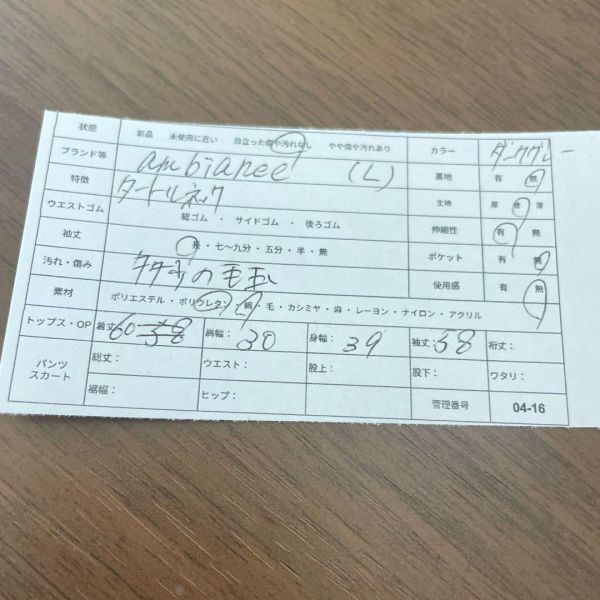 状態 新品 未使用に近い 目立った傷や汚れなし やや傷や汚れあり カラー ダークグレー
ブランド等 ambiance (L) 裏地 有 無
特徴 タートルネック 生地 厚 普 薄
ウエストゴム 総ゴム ・ サイドゴム ・ 後ろゴム 伸縮性 有 無
袖丈 長 ・ 七~九分 ・ 五分 ・ 半 ・ 無 ポケット 有 無
汚れ・傷み 多少の毛玉 使用感 有 無
素材 ポリエステル ・ ポリウレタン ・ 綿 ・ 毛 ・ カシミヤ ・ 麻 ・ レーヨン ・ ナイロン ・ アクリル
トップス・OP 着丈: 60 58 肩幅: 30 身幅: 39 袖丈: 58 裄丈:
パンツ スカート 総丈: ウエスト: 股上: 股下: ワタリ:
裾幅: ヒップ: 管理番号 04-16